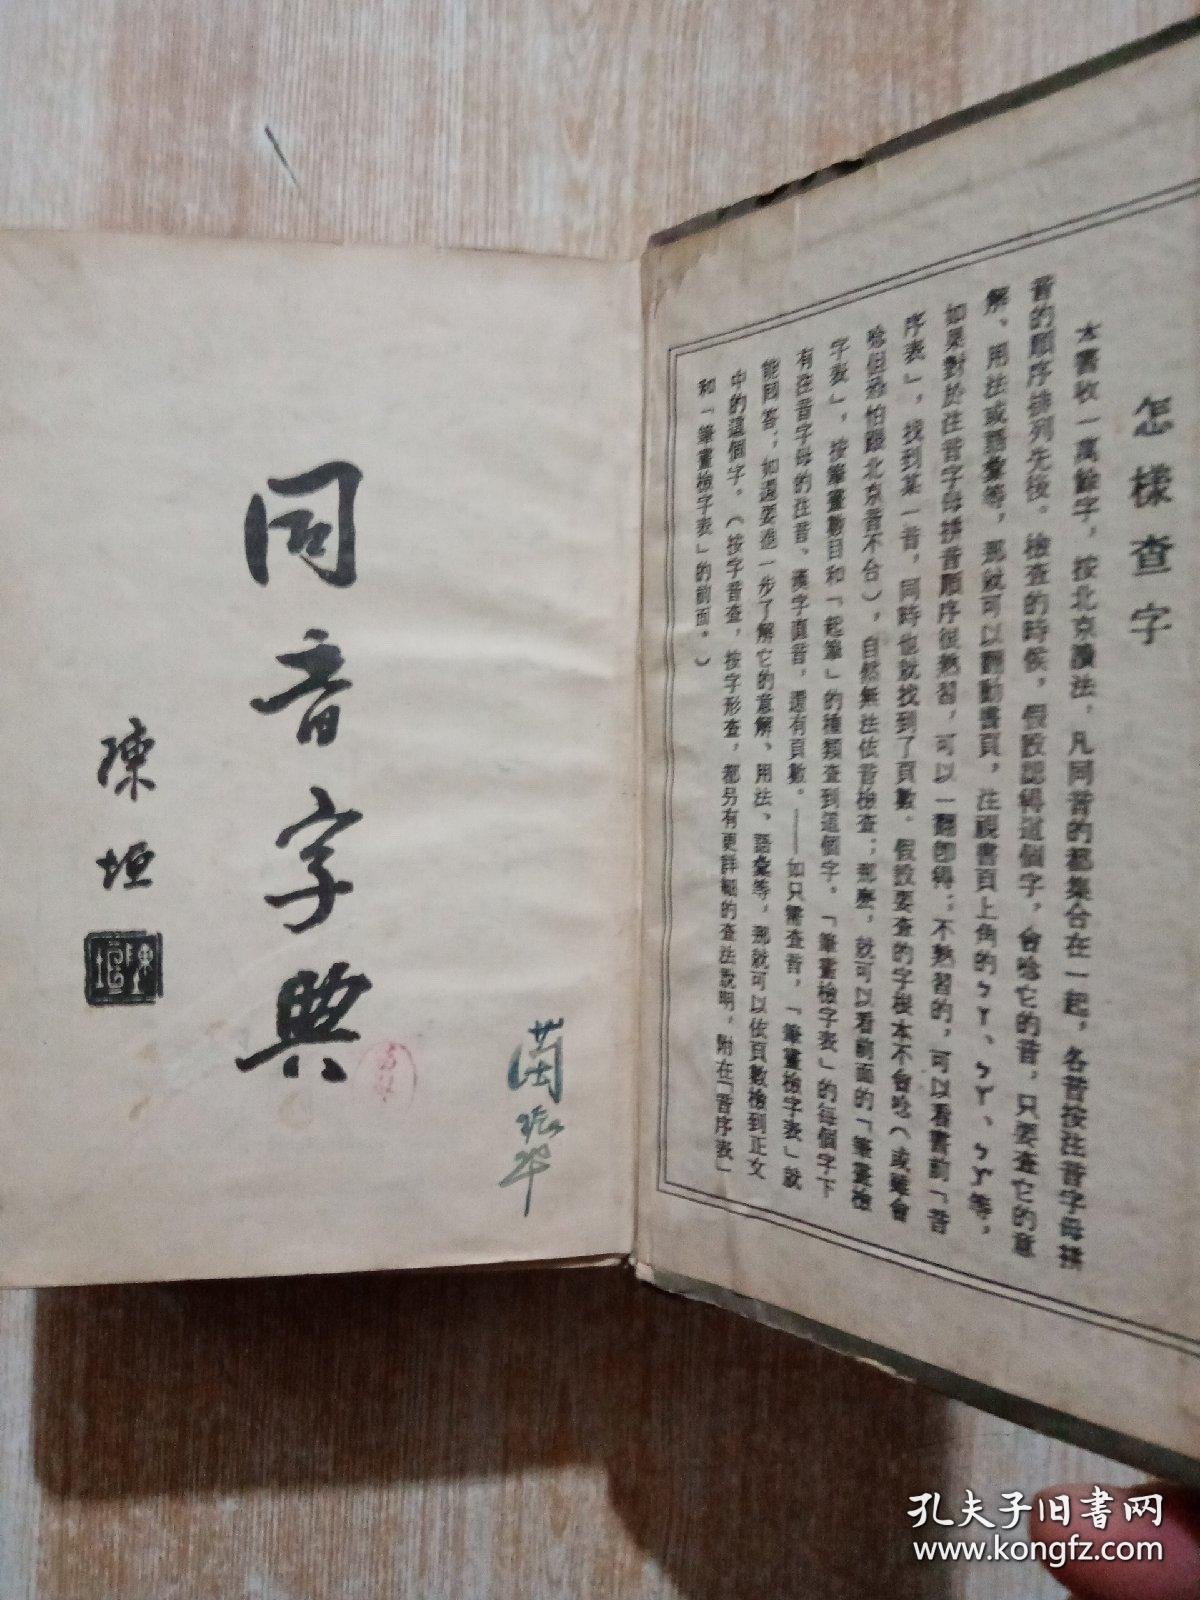 怎樣查字
本書收一萬餘字，按北京讀法，凡同音的都集合在一起，各音按注音字母拼
音的順序排列先後。檢查的時候，假設認得這個字，會唸它的音，只要查它的意
解、用法或語彙等，那就可以翻動書頁，注視書頁上角的ㄅㄚ、ㄅㄛ、ㄅㄞ等，
如果對於注音字母拼音順序很熟習，可以一翻卽得；不熟習的，可以看書前「音
序表」，找到某一音，同時也就找到了頁數。假設要查的字根本不會唸（或雖會
唸但恐怕跟北京音不合），自然無法依音檢查；那麼，就可以看前面的「筆畫檢
字表」，按筆畫數目和「起筆」的種類查到這個字。「筆畫檢字表」的每個字下
有注音字母的注音、漢字直音，還有頁數。——如只需查音，「筆畫檢字表」就
能回答；如還要進一步了解它的意解、用法、語彙等，那就可以依頁數檢到正文
中的這個字。（按字音查，按字形查，都另有更詳細的查法說明，附在「音序表」
和「筆畫檢字表」的前面。）
同音字典
陳垣
陳垣
孔夫子旧书网
www.kongfz.com